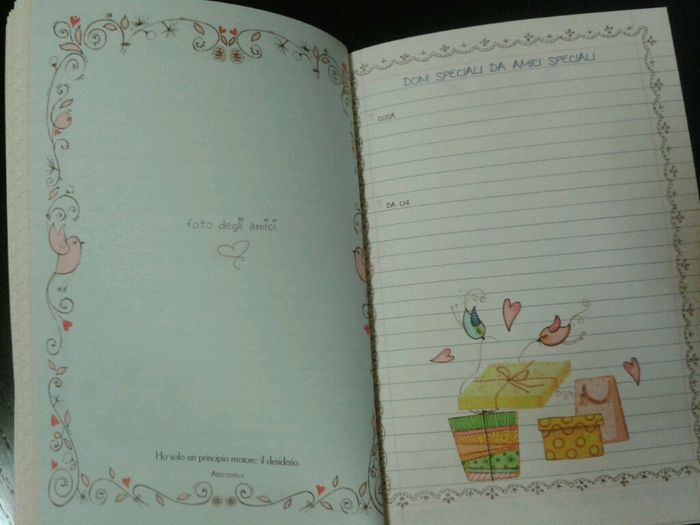 foto degli amici
Ho solo un principio motore: il desiderio.
ARISTOTELE
DONI SPECIALI DA AMICI SPECIALI
COSA
DA CHI